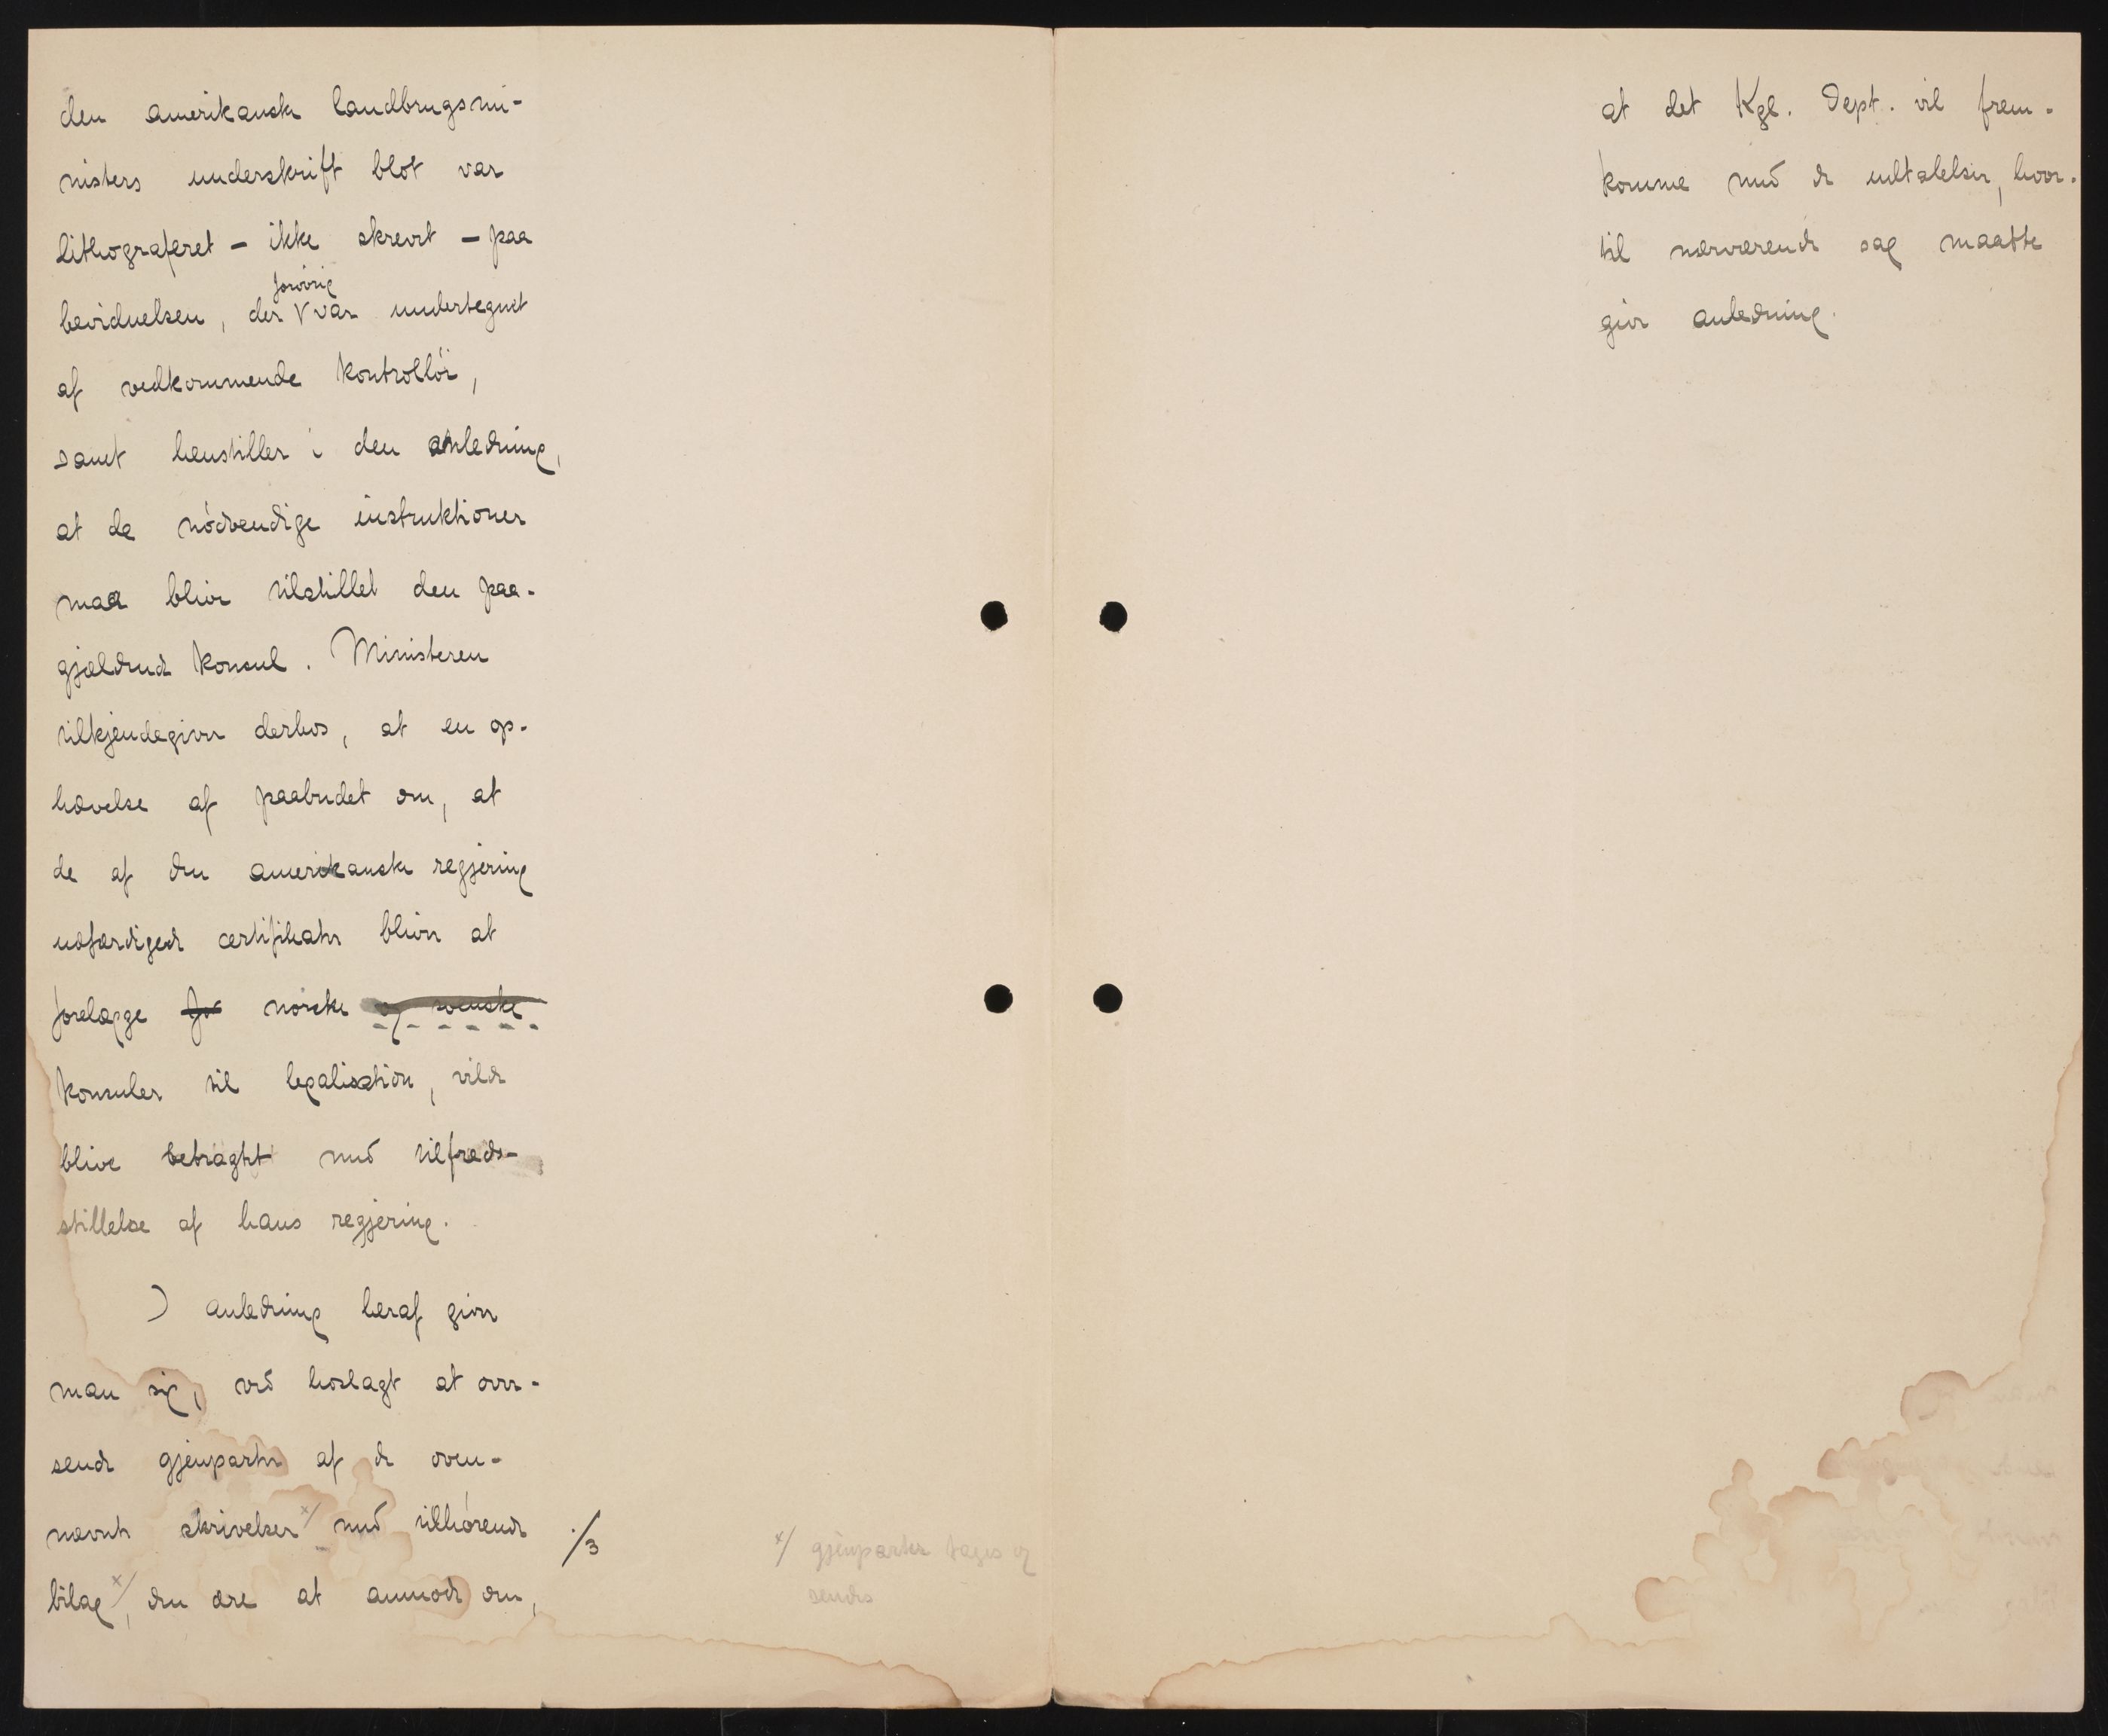 den amerikanske landbrugsmi-
nisters underskrift blot var
lithograferet - ikke skrevet - paa
forøvrig
bevidnelsen, der V var undertegnet
af vedkommende kontrollör,
samt henstiller i den anledning,
at de nödvendige instruktioner
maa blive tilstillet den paa-
gjældende konsul. Ministeren
tilkjendegiver derhos, at en op-
hævelse af paabudet om, at
de af den amerikanske regjering
udfærdigede certifikater bliver at
forelægge for norske og svenske
konsuler til legalisation, vilde
blive betragtet med tilfreds-
stillelse af hans regjering.
I anledning heraf giver
man sig, ved hoslagt at over-
sende gjenparter af de oven-
nævnte skrivelser x/ med tilhørende ./3
bilag x/, den ære at anmode om,
x/ gjenparter tages og
sendes
at det Kgl. Dept. vil frem-
komme med de udtalelser, hvor-
til nærværende sag maatte
give anledning.